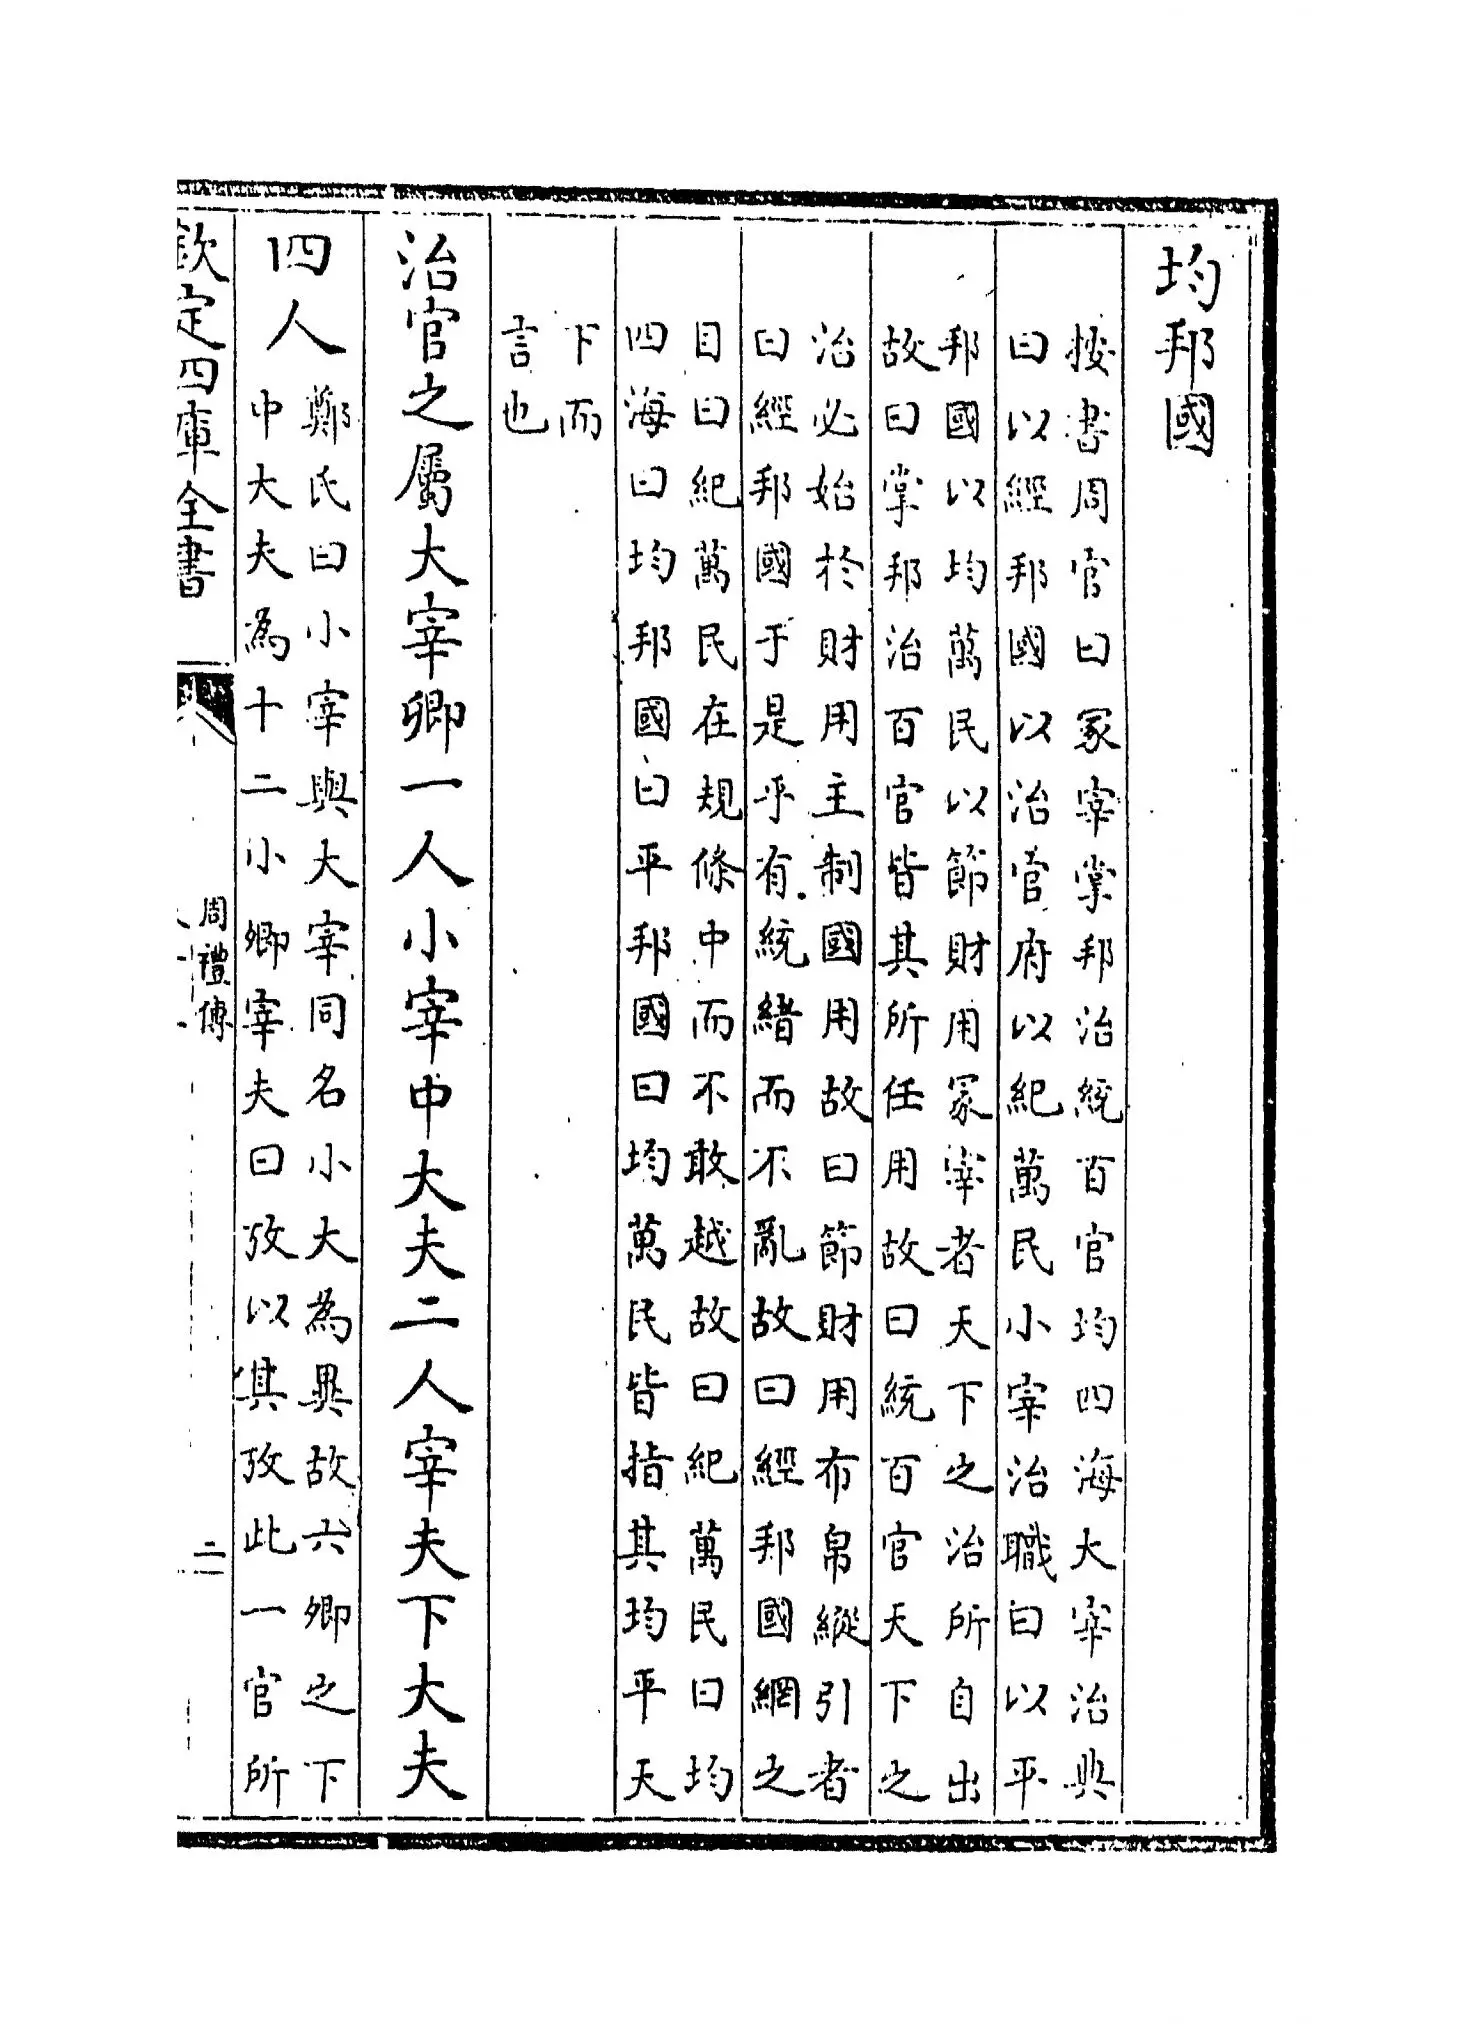 均邦國
按書周官曰冢宰掌邦治統百官均四海大宰治典
曰以經邦國以治官府以紀萬民小宰治職曰以平
邦國以均萬民以節財用冢宰者天下之治所自出
故曰掌邦治百官皆其所任用故曰統百官天下之
治必始於財用主制國用故曰節財用布帛縱引者
曰經邦國于是乎有統緒而不亂故曰經邦國網之
目曰紀萬民在規條中而不敢越故曰紀萬民曰均
四海曰均邦國曰平邦國曰均萬民皆指其均平天
下而
言也
治官之屬大宰卿一人小宰中大夫二人宰夫下大夫
四人
鄭氏曰小宰與大宰同名小大為異故六卿之下
中大夫為十二小卿宰夫曰攷以其攷此一官所
欽定四庫全書
周禮傳
二